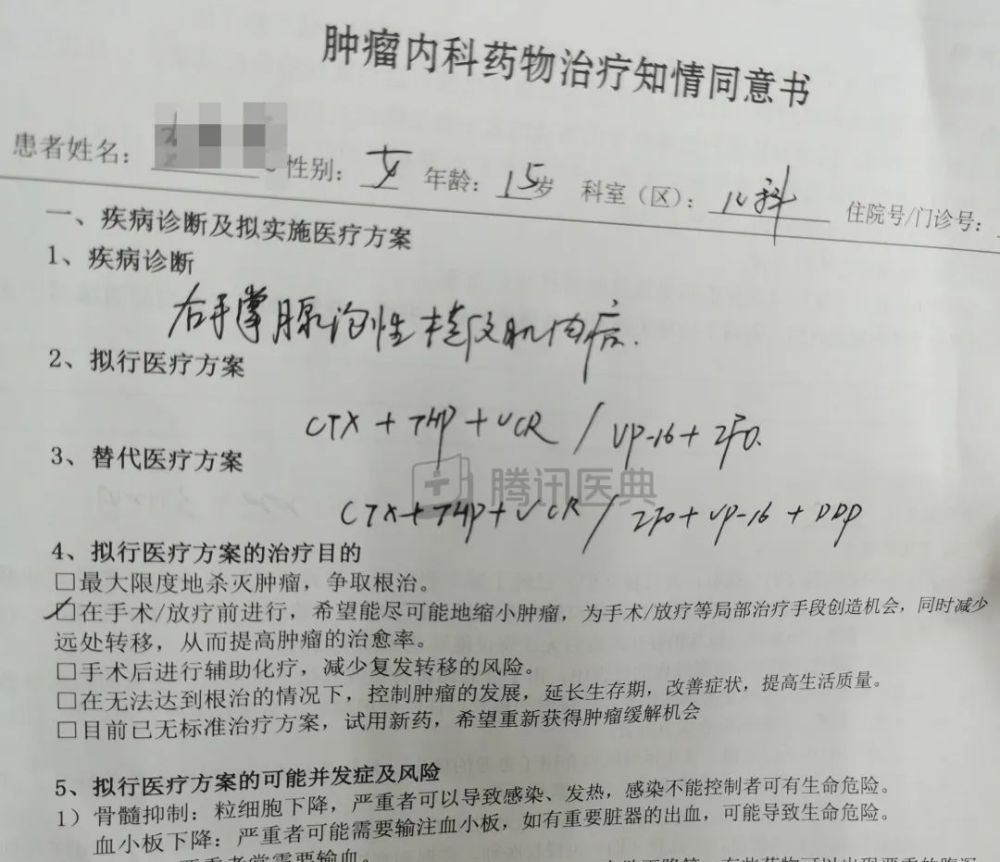 肿瘤内科药物治疗知情同意书
患者姓名： 性别：女 年龄：15岁 科室（区）：儿科 住院号/门诊号：
一、疾病诊断及拟实施医疗方案
1、疾病诊断
右手掌腺泡性横纹肌肉瘤.
2、拟行医疗方案
CTX + THP + VCR / VP-16 + IFO.
3、替代医疗方案
腾讯医典
CTX + THP + VCR / IFO + VP-16 + DDP
4、拟行医疗方案的治疗目的
□最大限度地杀灭肿瘤，争取根治。
☑在手术/放疗前进行，希望能尽可能地缩小肿瘤，为手术/放疗等局部治疗手段创造机会，同时减少
远处转移，从而提高肿瘤的治愈率。
□手术后进行辅助化疗，减少复发转移的风险。
□在无法达到根治的情况下，控制肿瘤的发展，延长生存期，改善症状，提高生活质量。
□目前已无标准治疗方案，试用新药，希望重新获得肿瘤缓解机会
5、拟行医疗方案的可能并发症及风险
1）骨髓抑制：粒细胞下降，严重者可以导致感染、发热，感染不能控制者可有生命危险。
血小板下降：严重者可能需要输注血小板，如有重要脏器的出血，可能导致生命危险。
严重者常需要输血。